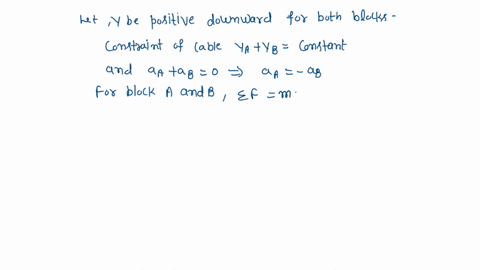 Let, Y be positive downward for both blocks -
Constraint of Cable Y_A + Y_B = Constant
and a_A + a_B = 0 ⇒ a_A = - a_B
For block A and B, ΣF = m.